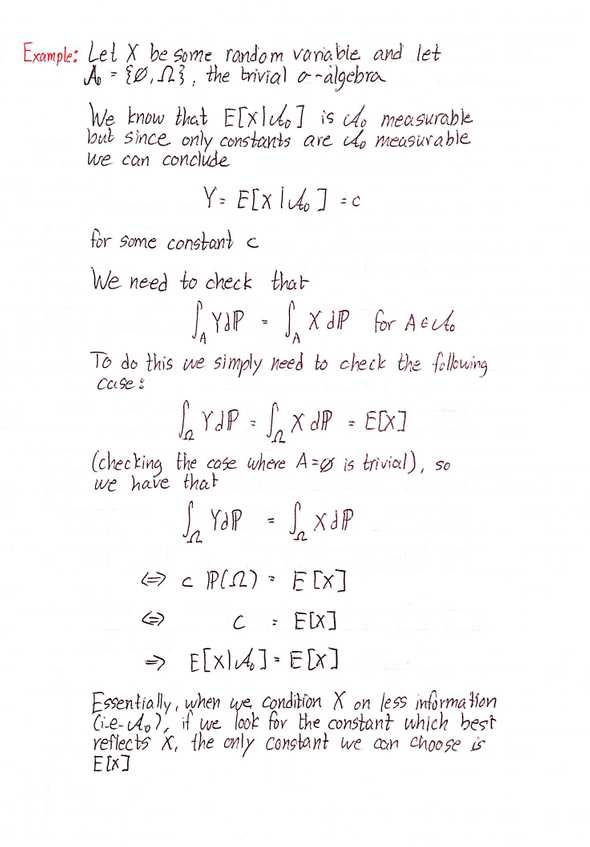 Example: Let X be some random variable and let
𝒜₀ = {∅, Ω}, the trivial σ-algebra
We know that E[X|𝒜₀] is 𝒜₀ measurable
but since only constants are 𝒜₀ measurable
we can conclude
Y = E[X|𝒜₀] = c
for some constant c
We need to check that
∫_A Y dℙ = ∫_A X dℙ for A ∈ 𝒜₀
To do this we simply need to check the following
case:
∫_Ω Y dℙ = ∫_Ω X dℙ = E[X]
(checking the case where A=∅ is trivial), so
we have that
∫_Ω Y dℙ = ∫_Ω X dℙ
⇔ c ℙ(Ω) = E[X]
⇔ c = E[X]
⇒ E[X|𝒜₀] = E[X]
Essentially, when we condition X on less information
(i.e- 𝒜₀), if we look for the constant which best
reflects X, the only constant we can choose is
E[X]